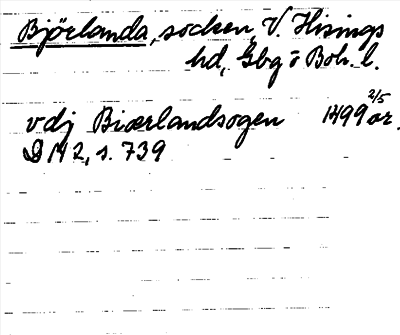 Björlanda, socken, V. Hisings
hd, Gbg o Boh. l.
vdj Biærlandsogen 1499 2/5 or.
DN 2, s. 739